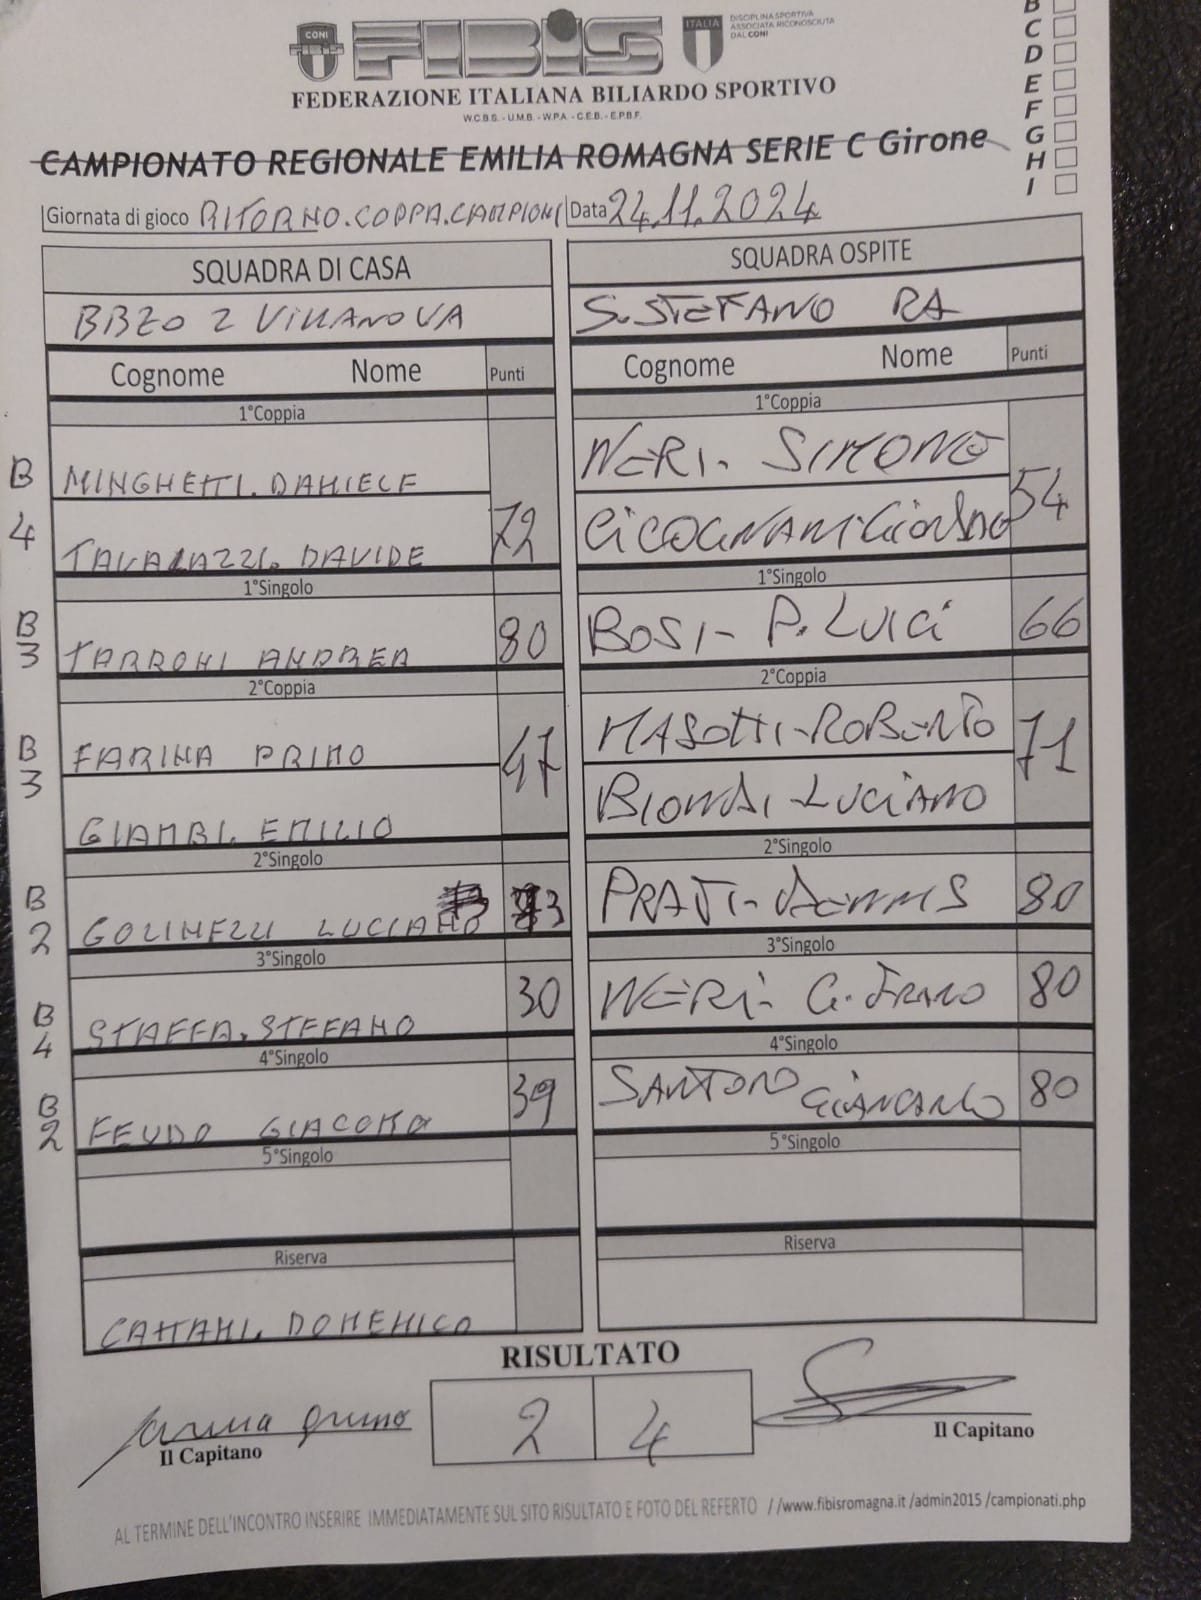 CONI
FIBIS
FIBIS
ITALIA
DISCIPLINA SPORTIVA
ASSOCIATA RICONOSCIUTA
DAL CONI
FEDERAZIONE ITALIANA BILIARDO SPORTIVO
W.C.B.S. - U.M.B. - W.P.A. - C.E.B. - E.P.B.F.
B
C
D
E
F
G
H
I
CAMPIONATO REGIONALE EMILIA ROMAGNA SERIE C Girone
Giornata di gioco RITORNO.COPPA.CAMPIONI Data 24.11.2024
SQUADRA DI CASA SQUADRA OSPITE
VILLANOVA S.STEFANO RA
Cognome Nome Punti Cognome Nome Punti
1°Coppia 1°Coppia
B MINGHETTI. DANIELE NERI. SIMONE
4 TAVALAZZI. DAVIDE 72 CICOGNANI 54
1°Singolo 1°Singolo
B 3 TARRONI ANDREA 80 BOSI - P. LUIGI 66
2°Coppia 2°Coppia
B FARINA PRIMO MASOTTI - ROBERTO
3 GIAMBI. EMILIO 47 BIONDI - LUCIANO 71
2°Singolo 2°Singolo
B 2 GOLINELLI LUCIANO PRATI - DENNIS 80
3°Singolo 3°Singolo
B 4 STAFFA. STEFANO 30 NERI - G. FRANCO 80
4°Singolo 4°Singolo
B 2 FEUDO GIACOMO 39 SANTORO GIANCARLO 80
5°Singolo 5°Singolo
Riserva Riserva
CATTANI. DOMENICO
RISULTATO
2 4
Farina Primo
Il Capitano Il Capitano
AL TERMINE DELL'INCONTRO INSERIRE IMMEDIATAMENTE SUL SITO RISULTATO E FOTO DEL REFERTO //www.fibisromagna.it /admin2015 /campionati.php